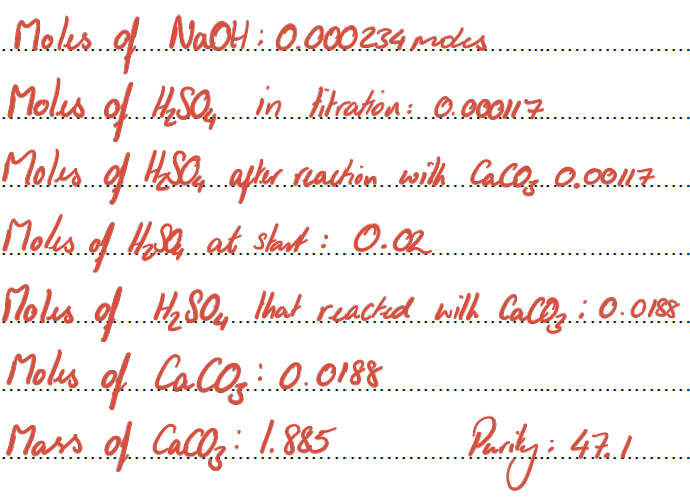 Moles of NaOH: 0.000234 moles
Moles of H₂SO₄ in titration: 0.000117
Moles of H₂SO₄ after reaction with CaCO₃ 0.00117
Moles of H₂SO₄ at start: 0.02
Moles of H₂SO₄ that reacted with CaCO₃: 0.0188
Moles of CaCO₃: 0.0188
Mass of CaCO₃: 1.885 Purity: 47.1